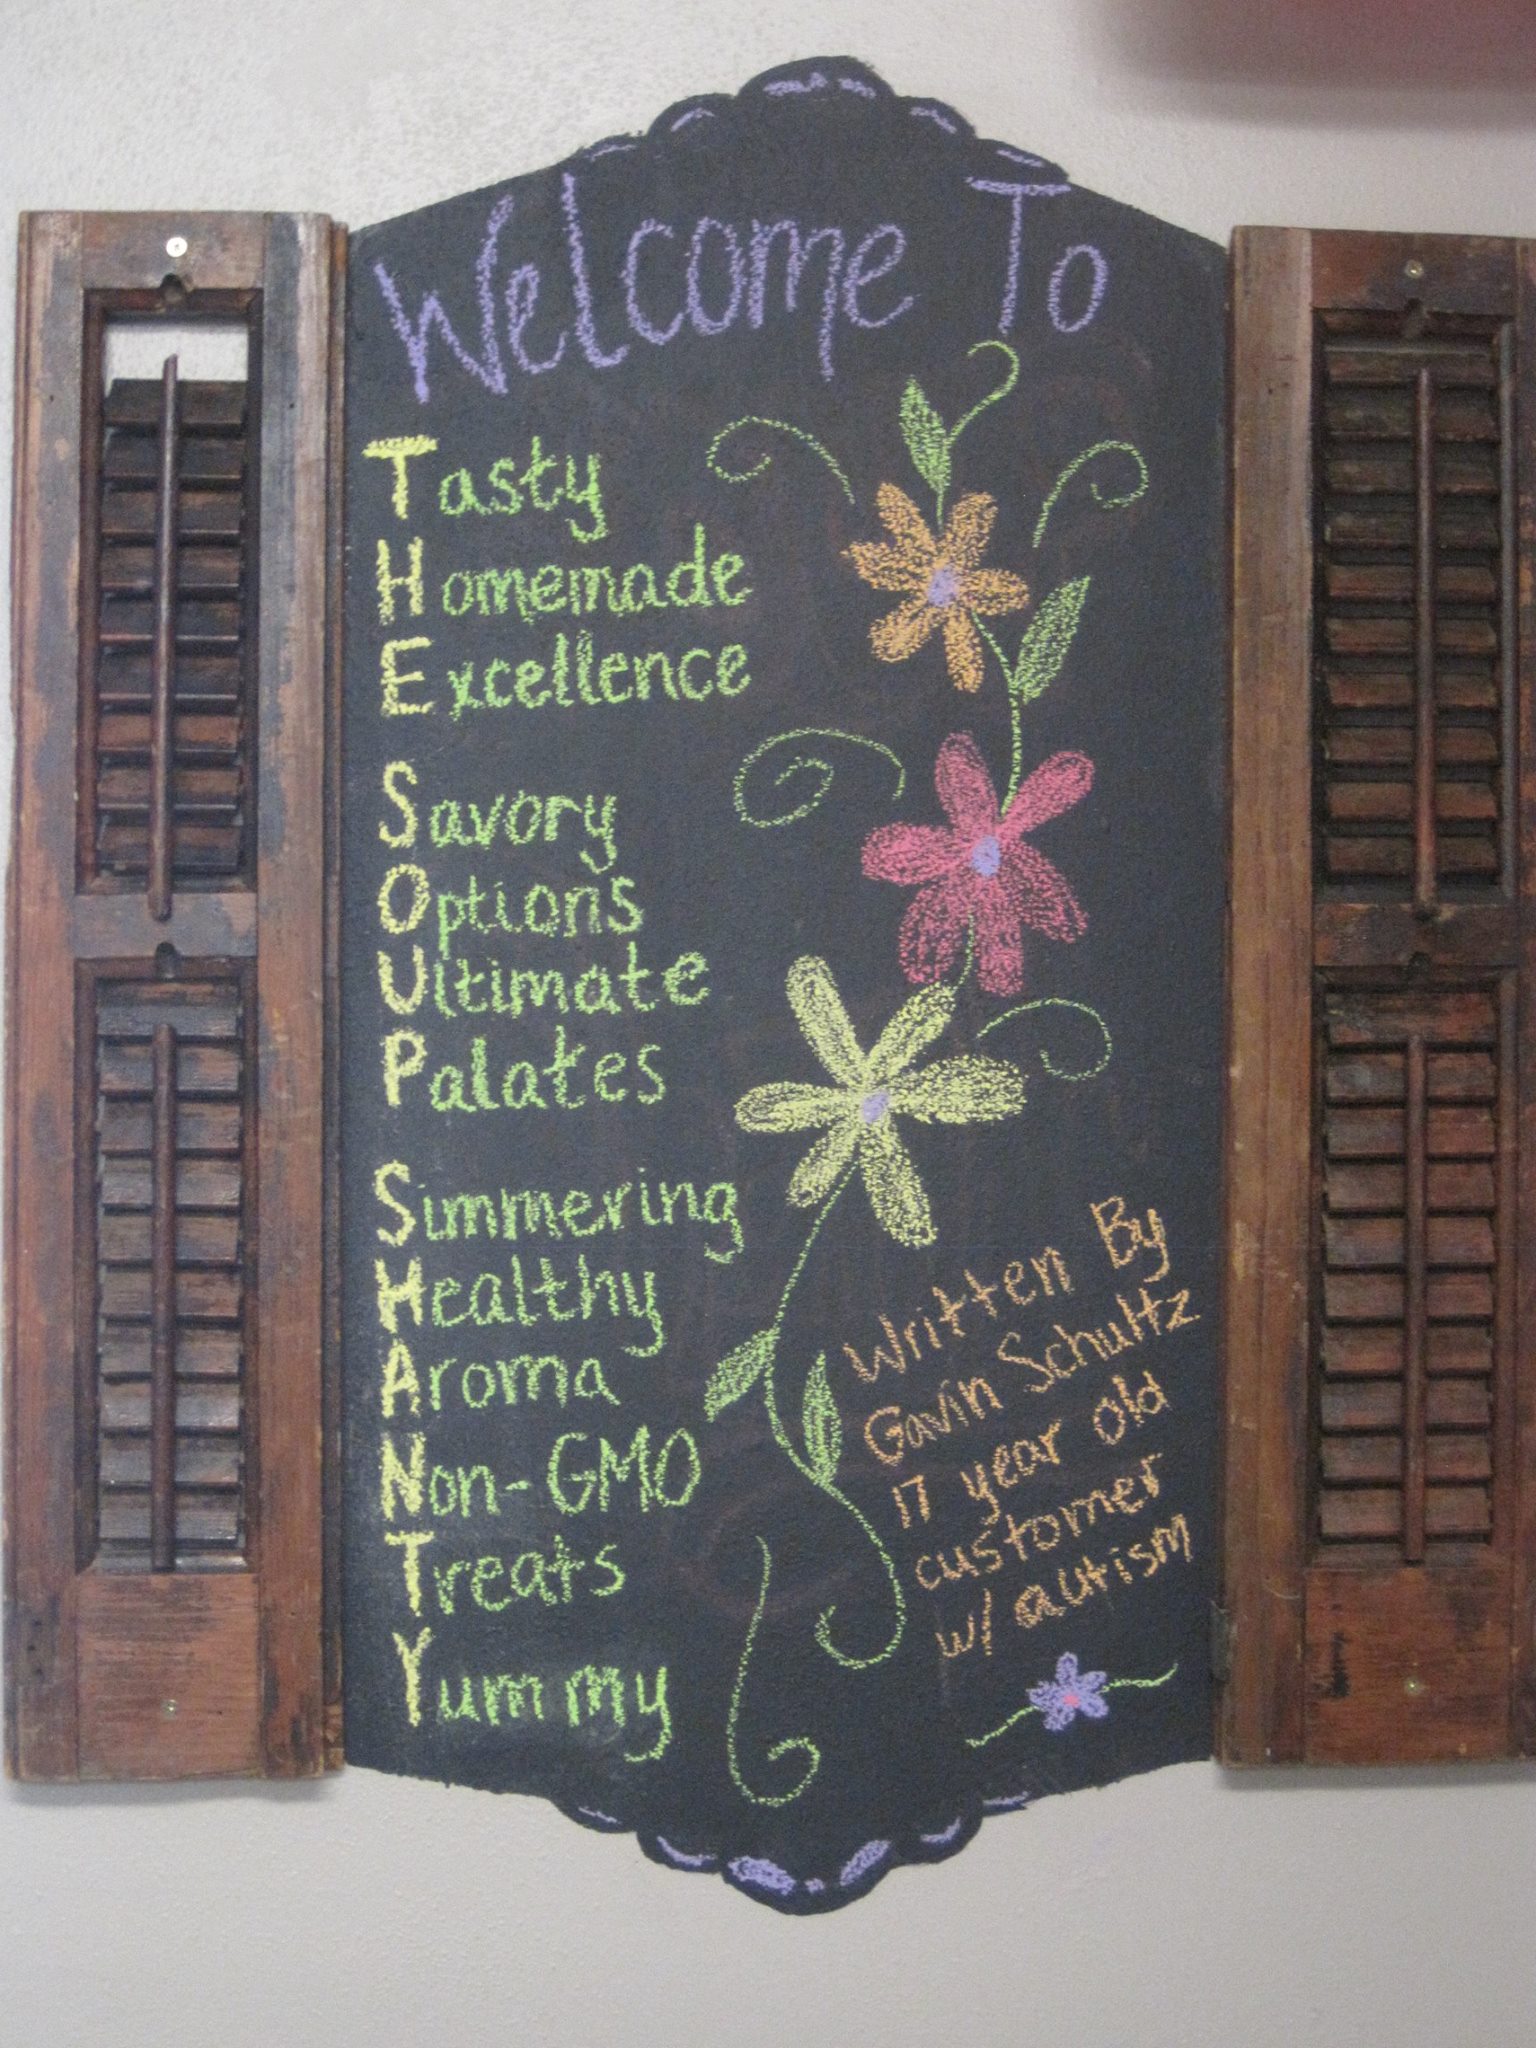 Welcome To
Tasty
Homemade
Excellence
Savory
Options
Ultimate
Palates
Simmering
Healthy
Aroma
Non-GMO
Treats
Yummy
Written By
Gavin Schultz
17 year old
customer
w/ autism